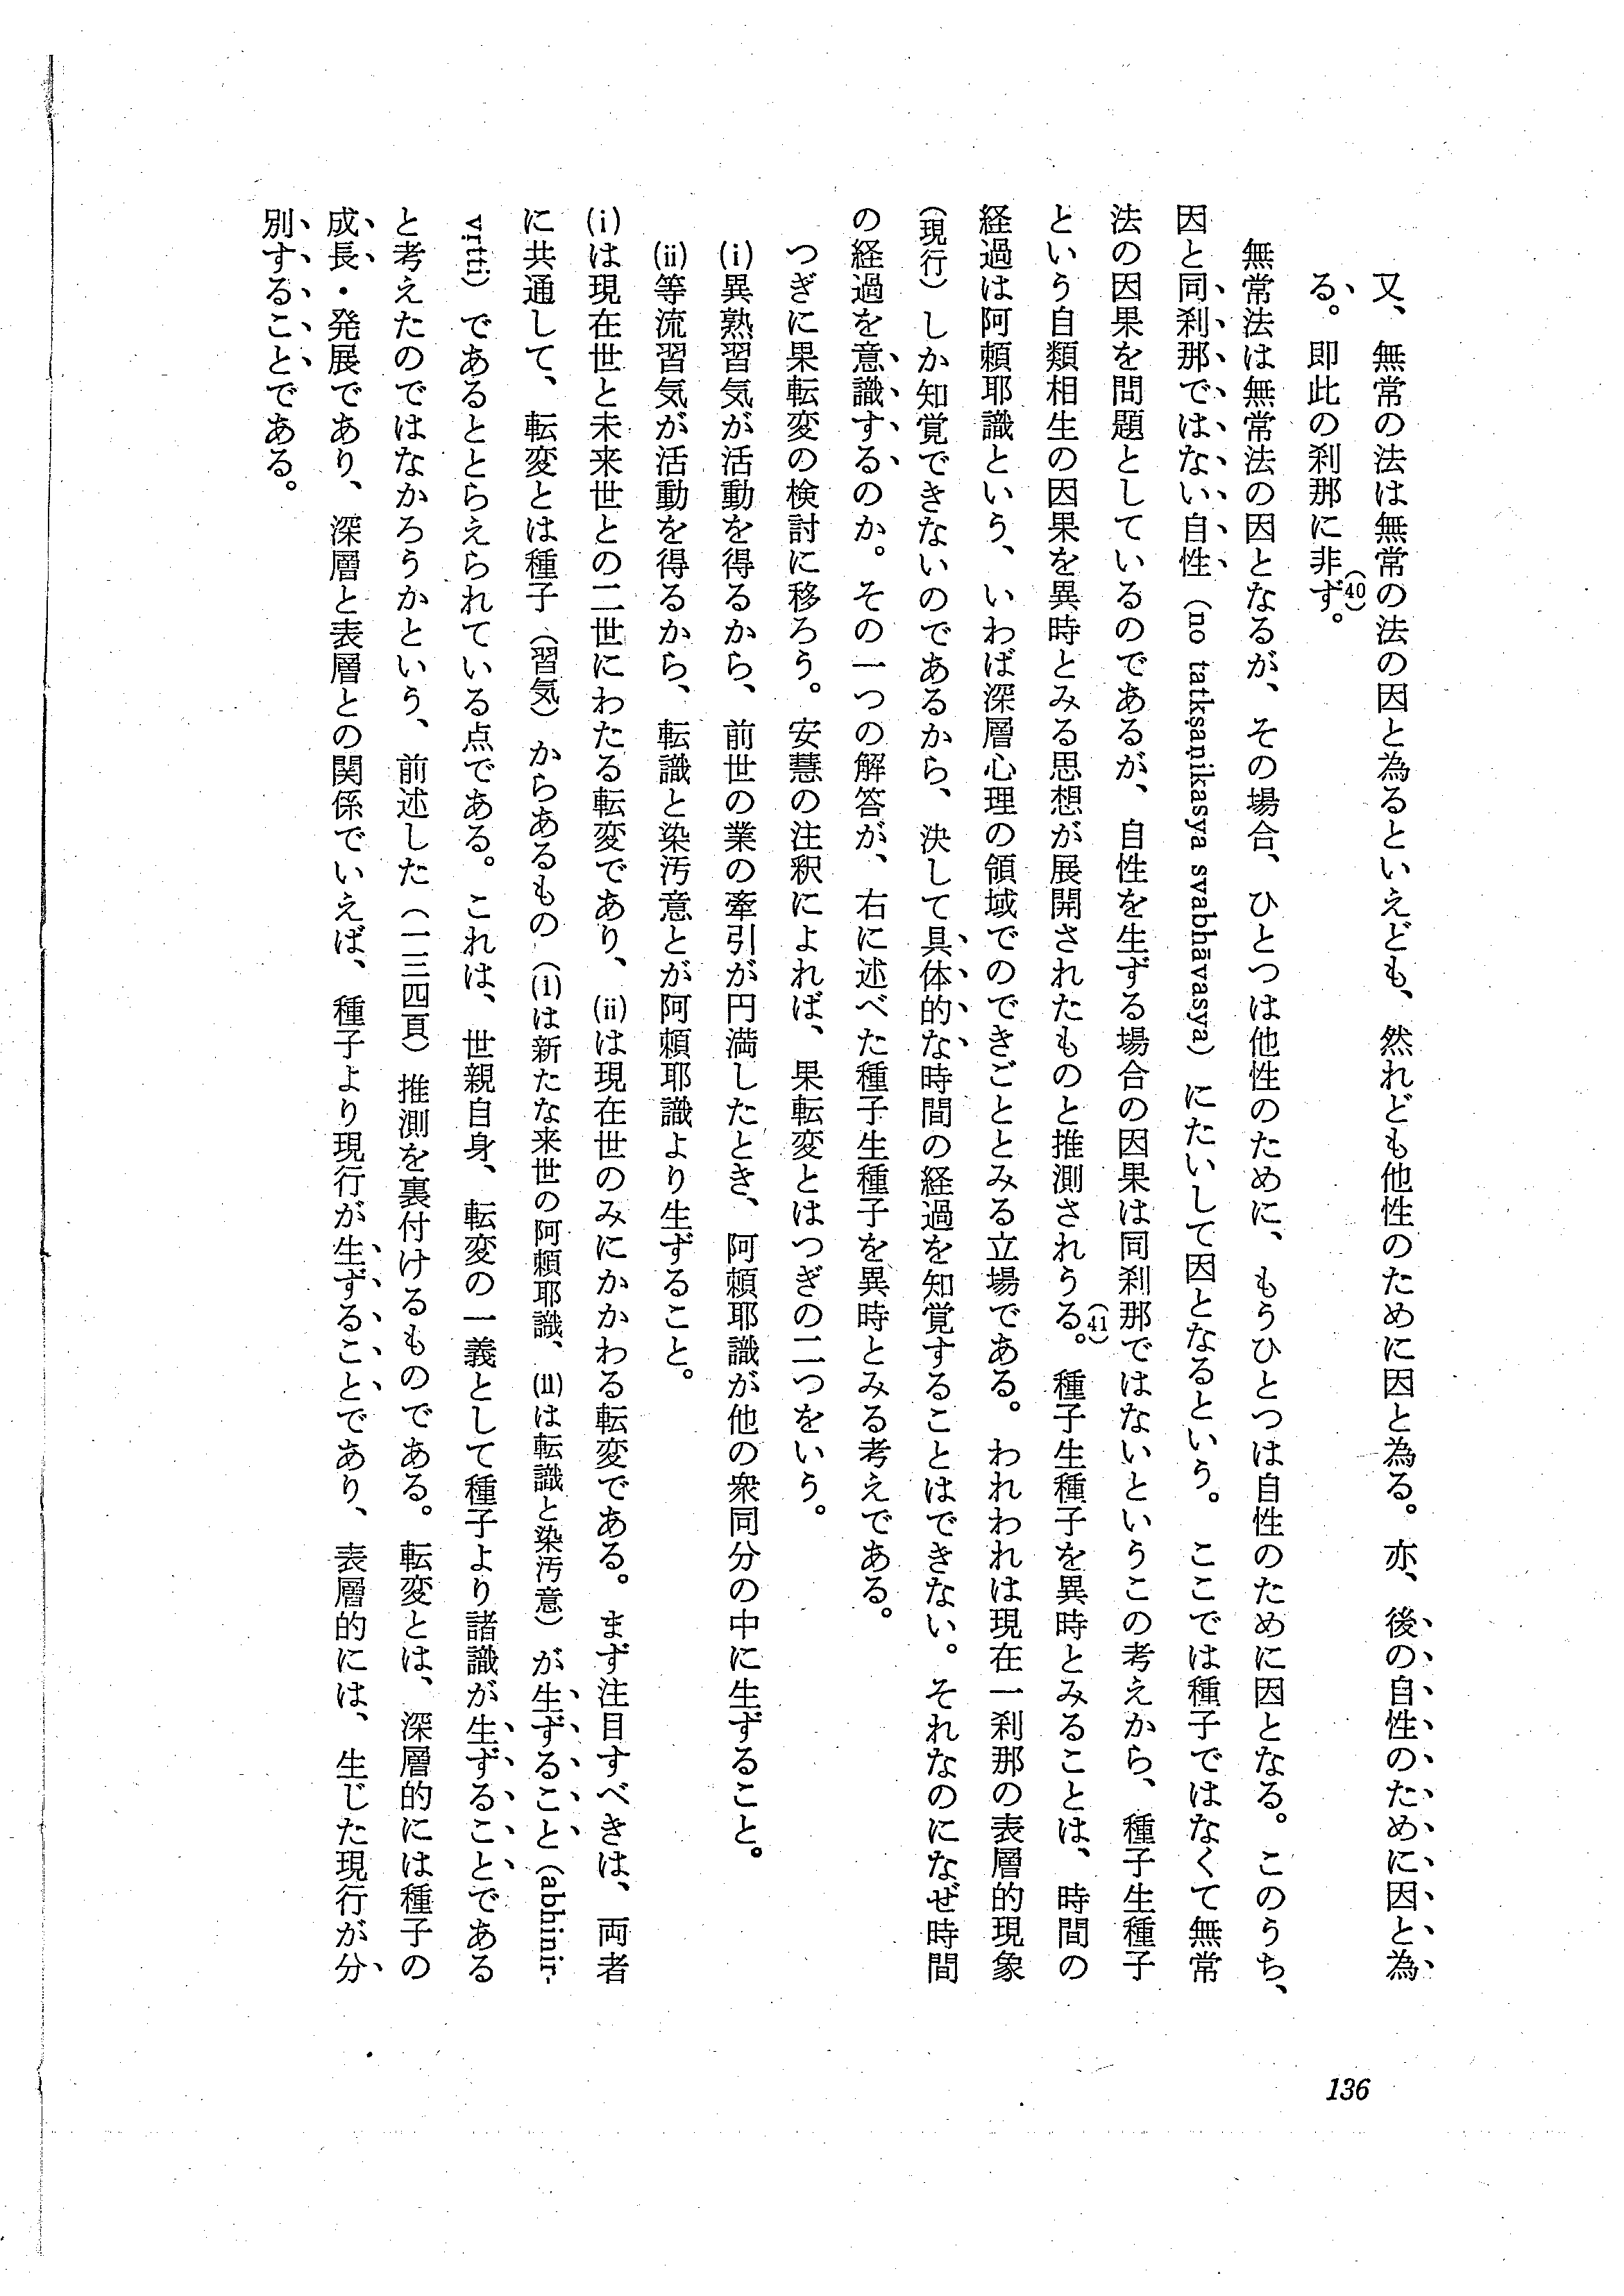 又、無常の法は無常の法の因と為るといえども、然れども他性のために因と為る。亦、後の自性のために因と為
る。即此の刹那に非ず。(40)
無常法は無常法の因となるが、その場合、ひとつは他性のために、もうひとつは自性のために因となる。このうち、
因と同刹那ではない自性（no tatkṣaṇikasya svabhāvasya）にたいして因となるという。ここでは種子ではなくて無常
法の因果を問題としているのであるが、自性を生ずる場合の因果は同刹那ではないというこの考えから、種子生種子
という自類相生の因果を異時とみる思想が展開されたものと推測されうる。(41)種子生種子を異時とみることは、時間の
経過は阿頼耶識という、いわば深層心理の領域でのできごととみる立場である。われわれは現在一刹那の表層的現象
（現行）しか知覚できないのであるから、決して具体的な時間の経過を知覚することはできない。それなのになぜ時間
の経過を意識するのか。その一つの解答が、右に述べた種子生種子を異時とみる考えである。
つぎに果転変の検討に移ろう。安慧の注釈によれば、果転変とはつぎの二つをいう。
(i)異熟習気が活動を得るから、前世の業の牽引が円満したとき、阿頼耶識が他の衆同分の中に生ずること。
(ii)等流習気が活動を得るから、転識と染汚意とが阿頼耶識より生ずること。
(i)は現在世と未来世との二世にわたる転変であり、(ii)は現在世のみにかかわる転変である。まず注目すべきは、両者
に共通して、転変とは種子（習気）からあるもの（(i)は新たな来世の阿頼耶識、(ii)は転識と染汚意）が生ずること（abhinir-
vṛtti）であるととらえられている点である。これは、世親自身、転変の一義として種子より諸識が生ずることである
と考えたのではなかろうかという、前述した（一三四頁）推測を裏付けるものである。転変とは、深層的には種子の
成長・発展であり、深層と表層との関係でいえば、種子より現行が生ずることであり、表層的には、生じた現行が分
別することである。
136